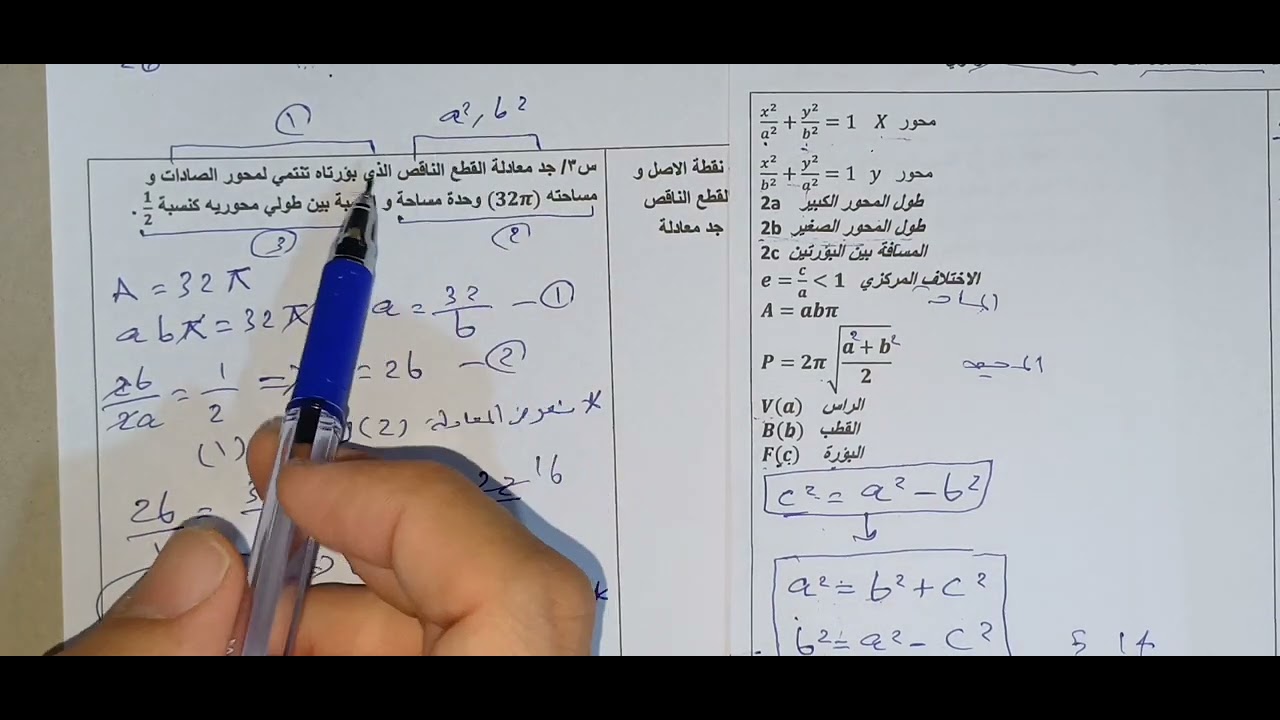 a², b²
①
س٣/ جد معادلة القطع الناقص الذي بؤرتاه تنتمي لمحور الصادات و
مساحته (32π) وحدة مساحة و بين طولي محوريه كنسبة 1/2 .
②
③
A = 32π
abπ = 32π a = 32/b — ①
2b/2a = 1/2 = 2b — ②
* نعوض المعادلة (2)
(1)
16
2b =
نقطة الاصل و
القطع الناقص
جد معادلة
x²/a² + y²/b² = 1 X محور
x²/b² + y²/a² = 1 y محور
2a طول المحور الكبير
2b طول المحور الصغير
2c المسافة بين البؤرتين
e = c/a < 1 الاختلاف المركزي
A = abπ المساحة
P = 2π√((a² + b²)/2) المحيط
V(a) الراس
B(b) القطب
F(c) البؤرة
c² = a² - b²
a² = b² + c²
b² = a² - c²